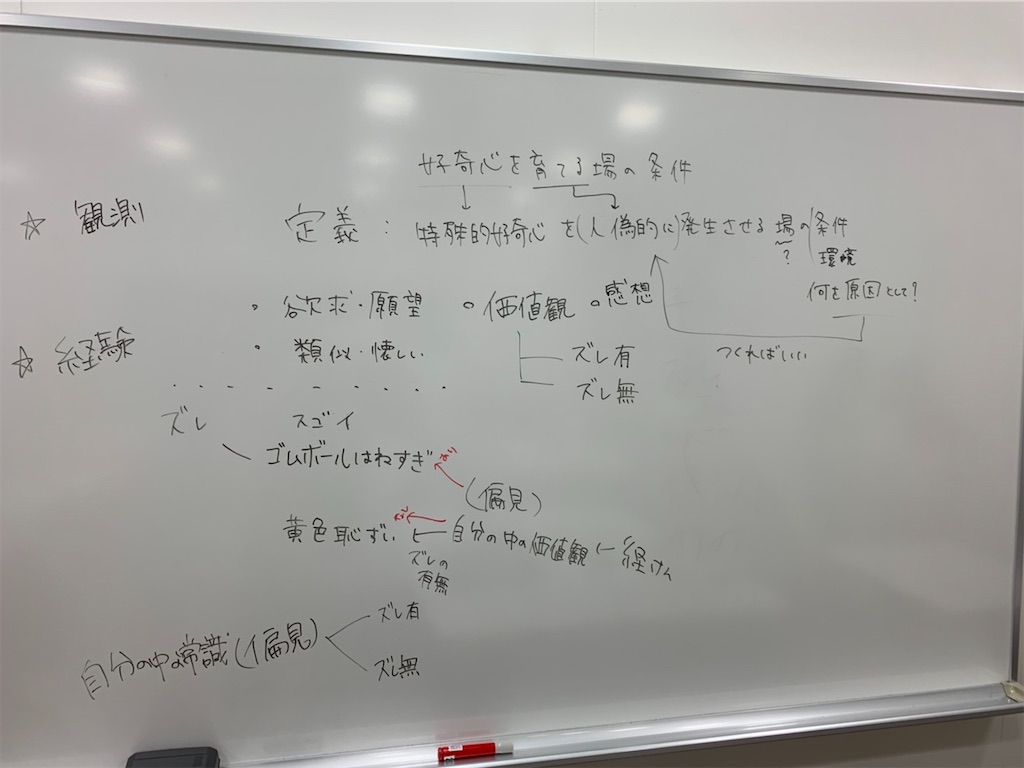 好奇心を育てる場の条件
☆ 観測
定義 : 特殊的好奇心を(人偽的に)発生させる場の(条件
?
環境
何を原因として?
つくればいい
・欲求・願望 ・価値観 ・感想
☆ 経験
・類似・懐しい
ズレ有
ズレ無
ズレ スゴイ
ゴムボールはねすぎ
(偏見)
黄色恥ずい ← 自分の中の価値観 ← 経けん
ズレの
有無
自分の中の常識(偏見)
ズレ有
ズレ無